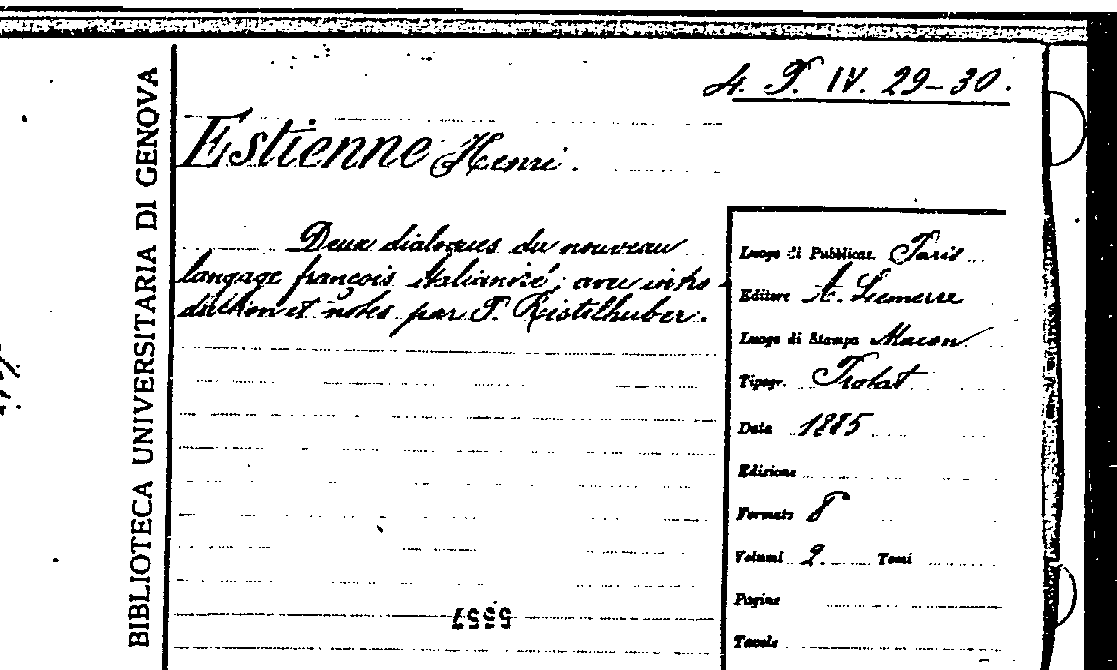 4. T. IV. 29-30.
BIBLIOTECA UNIVERSITARIA DI GENOVA
Estienne Henri.
Deux dialogues du nouveau
langage françois italianizé; avec intro-
duction et notes par P. Ristelhuber.
Luogo di Pubblicaz. Paris
Editore A. Lemerre
Luogo di Stampa Macon
Tipogr. Protat
Data 1885
Edizione
Formato 8
Volumi 2. Tomi
Pagine
Tavole